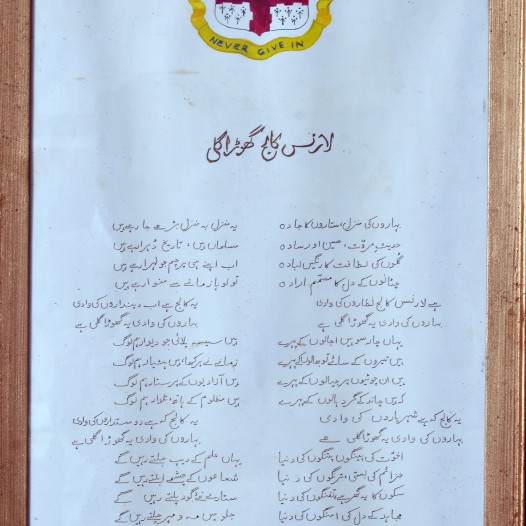 NEVER GIVE IN
لارنس کالج گھوڑا گلی
بہاروں کی منزل، ستاروں کا جادہ
حدیثِ مروّت، حسین اور سادہ
گلوں کی لطافت کا رنگیں لبادہ
چٹانوں کے دل کا مصمّم ارادہ
ہے لارنس کالج نظاروں کی وادی
بہاروں کی وادی یہ گھوڑا گلی ہے
یہاں چار سو ہیں اجالوں کے پہرے
ہیں تیروں کے سائے تو بھالوں کے پہرے
ہیں ان چوٹیوں پر جیالوں کے پہرے
کہیں چاند کے گرد ہالوں کے پہرے
یہ کالج کہ ہے شہریاروں کی وادی
بہاروں کی وادی یہ گھوڑا گلی ہے
اخوّت کی پینگوں پتنگوں کی دنیا
عزائم کی بستی، ترنگوں کی دنیا
سکوں کا یہ گھر ہے تفنگوں کی دنیا
مجاہد کے دل کی امنگوں کی دنیا
یہ منزل بہ منزل بڑھے جا رہے ہیں
مسلماں ہیں، تاریخ دُہرا رہے ہیں
اب اپنے ہی پرچم جو لہرا رہے ہیں
تو لوہا زمانے سے منوا رہے ہیں
یہ کالج ہے اب دینداروں کی وادی
بہاروں کی وادی یہ گھوڑا گلی ہے
ہیں سیسہ پلائی جو دیوار ہم لوگ
زمانے نے پرکھا، ہیں ہشیار ہم لوگ
ہیں آزادیوں کے پرستار ہم لوگ
ہیں مظلوم کے ہاتھ، تلوار ہم لوگ
یہ کالج کہ ہے دوستداروں کی وادی
بہاروں کی وادی یہ گھوڑا گلی ہے
یہاں علم کے دیپ جلتے رہیں گے
شعاعوں کے چشمے ابلتے رہیں گے
ستارے نئے گود پلتے رہیں گے
جلو میں مہ و مہر چلتے رہیں گے